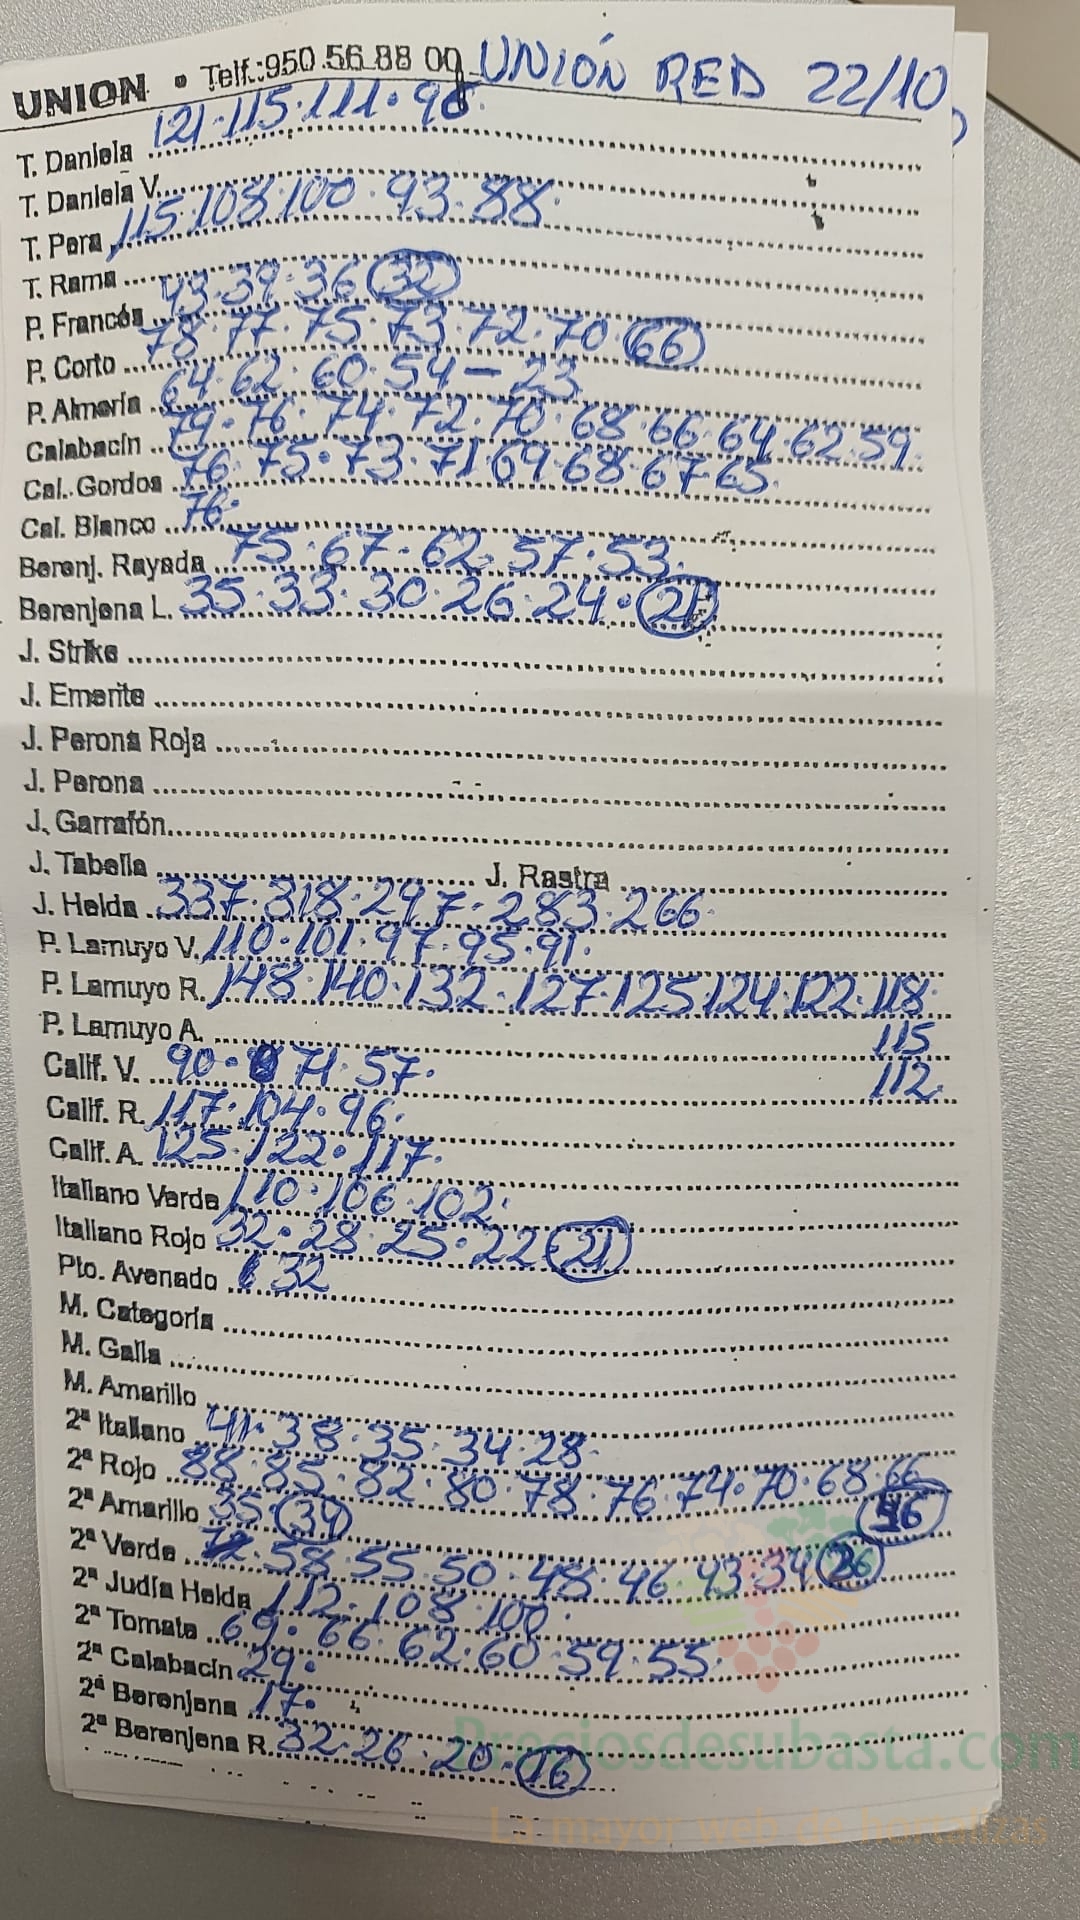 UNION • Telf.:950.56.88 00 UNIÓN RED 22/10
T. Daniela 121.115.111.98
T. Daniela V.
T. Pera 115.108.100.93.88
T. Rama
P. Francés 43.39.36 32
P. Corto 78.77.75.73.72.70 66
P. Almería 64.62.60.54-23
Calabacín 79.76.74.72.70.68.66.64.62.59
Cal. Gordos 76.75.73.71.69.68.67.65
Cal. Blanco 76.
Berenj. Rayada 75.67.62.57.53
Berenjena L. 35.33.30.26.24. 21
J. Strike
J. Emerite
J. Perona Roja
J. Perona
J. Garrafón
J. Tabella J. Rastra
J. Helda 337.318.297.283.266
P. Lamuyo V. 110.101.97.95.91.
P. Lamuyo R. 148.140.132.127.125 124.122.118
P. Lamuyo A. 115
Calif. V. 90. 71.57. 112.
Calif. R. 117.104.96.
Calif. A. 125.122.117.
Italiano Verde 110.106.102.
Italiano Rojo 32.28.25.22 21
Pto. Avenado 32
M. Categoría
M. Galia
M. Amarillo
2ª Italiano 41.38.35.34.28.
2ª Rojo 88.85.82.80.78.76.74.70.68.66
2ª Amarillo 35. 34 56
2ª Verde 58.55.50.48.46.43.34 26
2ª Judía Helda 112.108.100.
2ª Tomate 69.66.62.60.59.55.
2ª Calabacín 29.
2ª Berenjena 17.
2ª Berenjena R. 32.26.20. 16
Preciosdesubasta.com
La mayor web de hortalizas